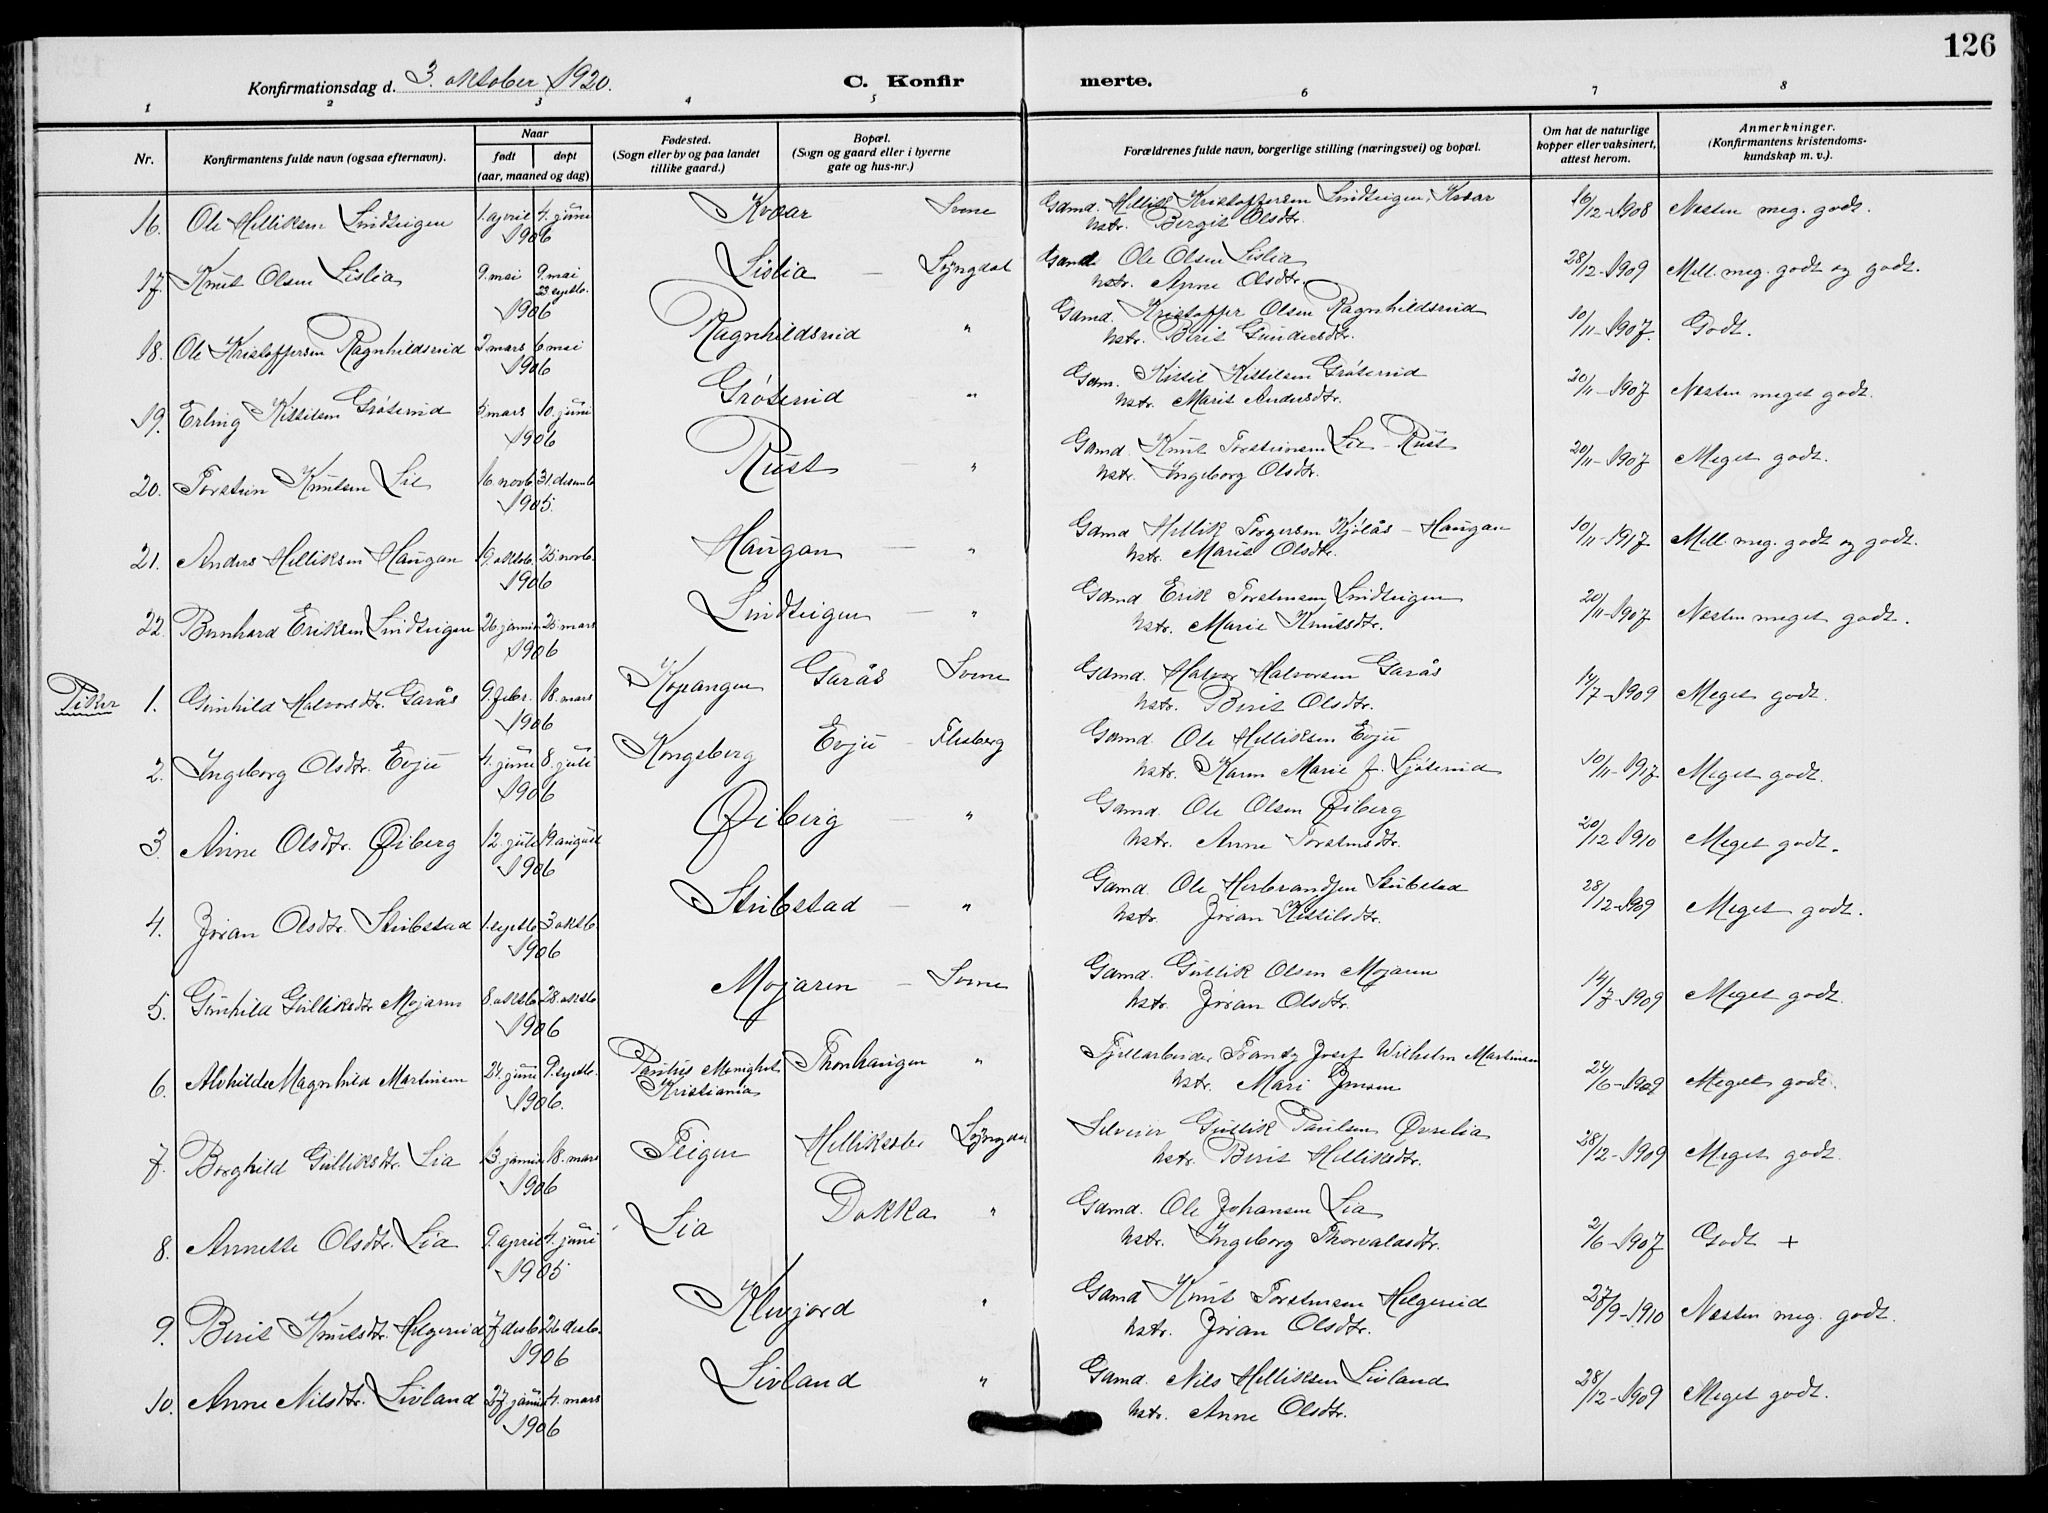 126
Konfirmationsdag d. 3. oktober 1920.
C. Konfirmerte.
1 2 3 4 5 6 7 8
Nr.
Konfirmantens fulde navn (ogsaa efternavn).
Naar
født døpt
(aar, maaned og dag)
Fødested.
(Sogn eller by og paa landet
tillike gaard.)
Bopæl.
(Sogn og gaard eller i byerne
gate og hus-nr.)
Forældrenes fulde navn, borgerlige stilling (næringsvei) og bopæl.
Om hat de naturlige
kopper eller vaksinert,
attest herom.
Anmerkninger.
(Konfirmantens kristendoms-
kundskap m. v.).
16. Ole Helliksen Lindteigen 1. april 4. juni Kvaar Svene Gamd. Hellik Kristoffersen Lindteigen, Kvaar 16/12-1908 Næsten meg. godt.
1906 hstr. Bergit Olsdtr.
17. Knut Olsen Lislia 9. mai 9. mai Lislia — Lyngdal Gamd. Ole Olsen Lislia 28/12-1909 Mell. meg. godt og godt.
23 septb. hstr. Anne Olsdtr.
1906
18. Ole Kristoffersen Ragnhildsrud 2 mars 6 mai Ragnhildsrud " Gamd. Kristoffer Olsen Ragnhildsrud 10/11-1907. Godt.
1906 hstr. Birit Gundersdtr.
19. Erling Kittilsen Grøterud 5 mars 10. juni Grøterud " Gam. Kittil Kittilsen Grøterud 20/11-1907 Næsten meget godt.
1906 hstr. Marit Andersdtr.
20. Torstein Knutsen Lie 16. novb. 31. desemb. Rust — " Gamd. Knut Torsteinsen Lie - Rust 20/11-1907 Meget godt.
1905. hstr. Ingeborg Olsdtr.
21. Anders Helliksen Haugan 19. oktob. 25. novb. Haugan — " Gamd Hellik Torgersen Kjølås - Haugan 10/11-1917 Mell. meg. godt og godt.
1906 hstr. Marit Olsdtr.
22. Bernhard Eriksen Lindteigen 26. januar 25. mars Lindteigen — " Gamd Erik Torstensen Lindteigen 20/11-1907 Næsten meget godt.
1906 hstr. Marie Knutsdtr.
Piker 1. Gunhild Halvorsdtr. Garås 9. febr. 18. mars Kopangen Garås — Svene Gamd. Halvor Halvorsen Garås 14/7-1909 Meget godt.
1906 hstr. Birit Olsdtr.
2. Ingeborg Olsdtr. Evju 4. juni 8. juli Kongsberg Evju — Flesberg Gamd. Ole Helliksen Evju 10/11-1917 Meget godt.
1906 hstr. Karen Marie f. Ljøterud
3. Anne Olsdtr. Øiberg 12. juli 19 august Øiberg — " Gamd. Ole Olsen Øiberg 20/12 1910 Meget godt.
1906 hstr. Anne Torstensdtr.
4. Jøran Olsdtr. Stubstad 1. septb. 3 oktb. Stubstad — " Gamd. Ole Herbrandsen Stubstad 28/12-1909 Meget godt.
1906 hstr. Jøran Kittilsdtr.
5. Gunhild Gulliksdtr. Mojaren 8. oktb. 28. oktb. Mojaren — Svene Gamd. Gullik Olsen Mojaren 14/7-1909 Meget godt.
1906 hstr. Jøran Olsdtr.
6. Alvhilde Magnhild Martinsen 24. juni 9. septb. Paulus Menighet Thonhaugen " Frantz Josef Wilhelm Martinsen 24/6-1909 Meget godt.
1906. Kristiania hstr. Mari Jensen
7. Borghild Gulliksdtr. Lia 3. januar 18. mars Teigen Helliksbe Lyngdal Selveier Gullik Paulsen Øvrelia 28/12-1909 Meget godt.
1906 hstr. Birit Helliksdtr.
8. Annette Olsdtr. Lia 9. april 4. juni Lia Dokka " Gamd. Ole Johansen Lia 2/6-1907 Godt +
1905 hstr. Ingeborg Thorvaldsdtr.
9. Birit Knutsdtr. Helgerud 7 desb. 26 desb. Klevjord " Gamd Knut Torstensen Helgerud 27/9-1910 Næsten meg. godt.
1906 hstr. Jøran Olsdtr.
10. Anne Nilsdtr. Livland 27. januar 4. mars Livland " Gamd. Nils Helliksen Livland 28/12-1909 Meget godt.
1906 hstr. Anne Olsdtr.